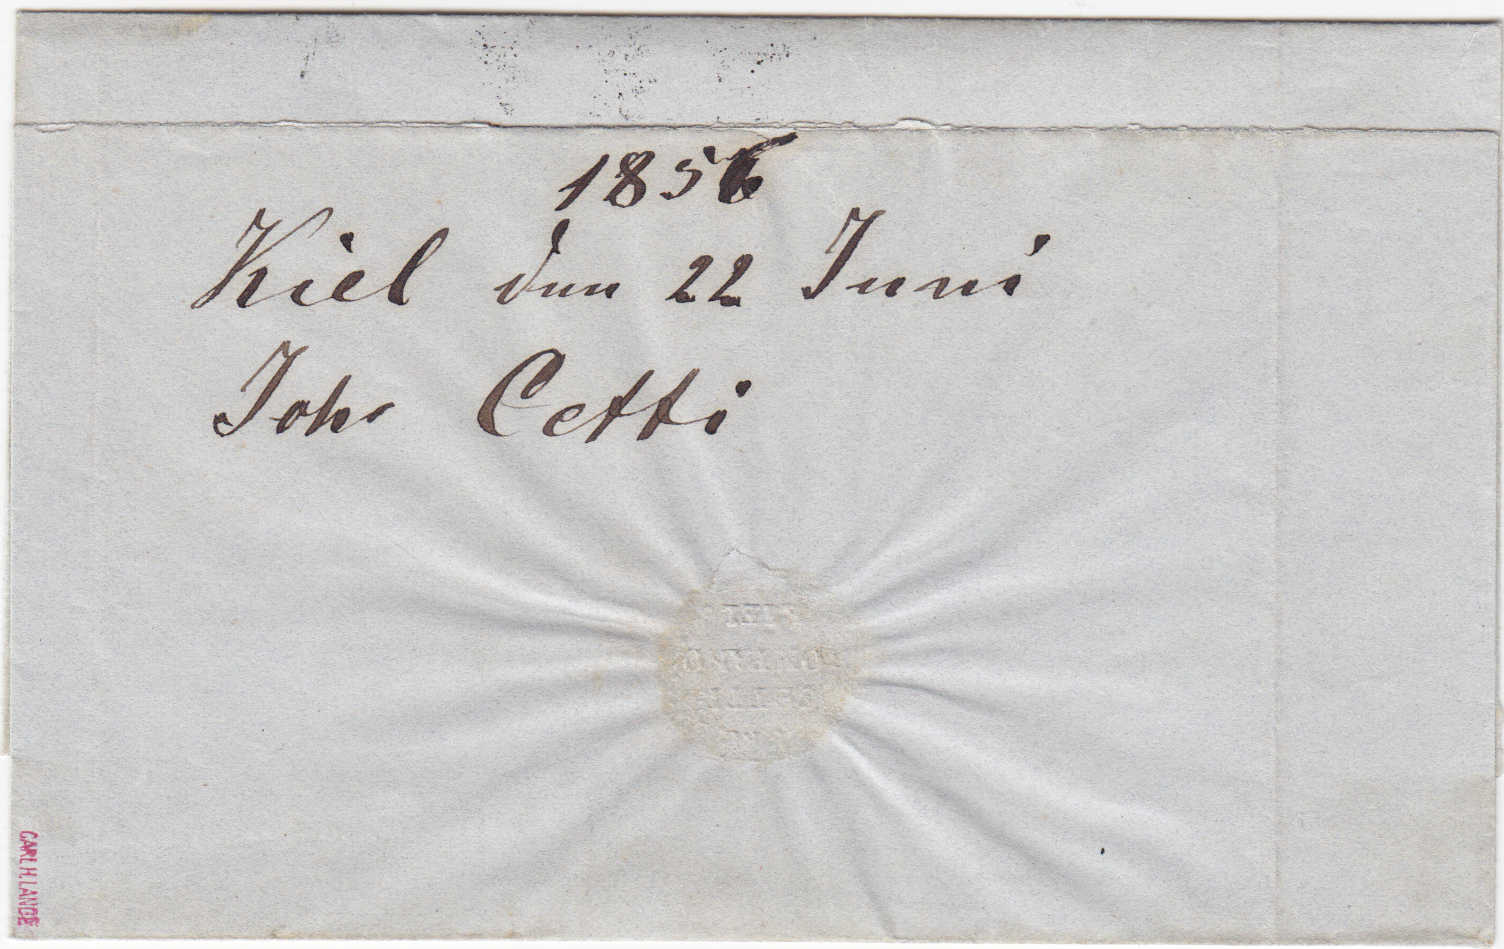 1856
Kiel den 22 Juni
Joh Cetti
CARL H. LANGE